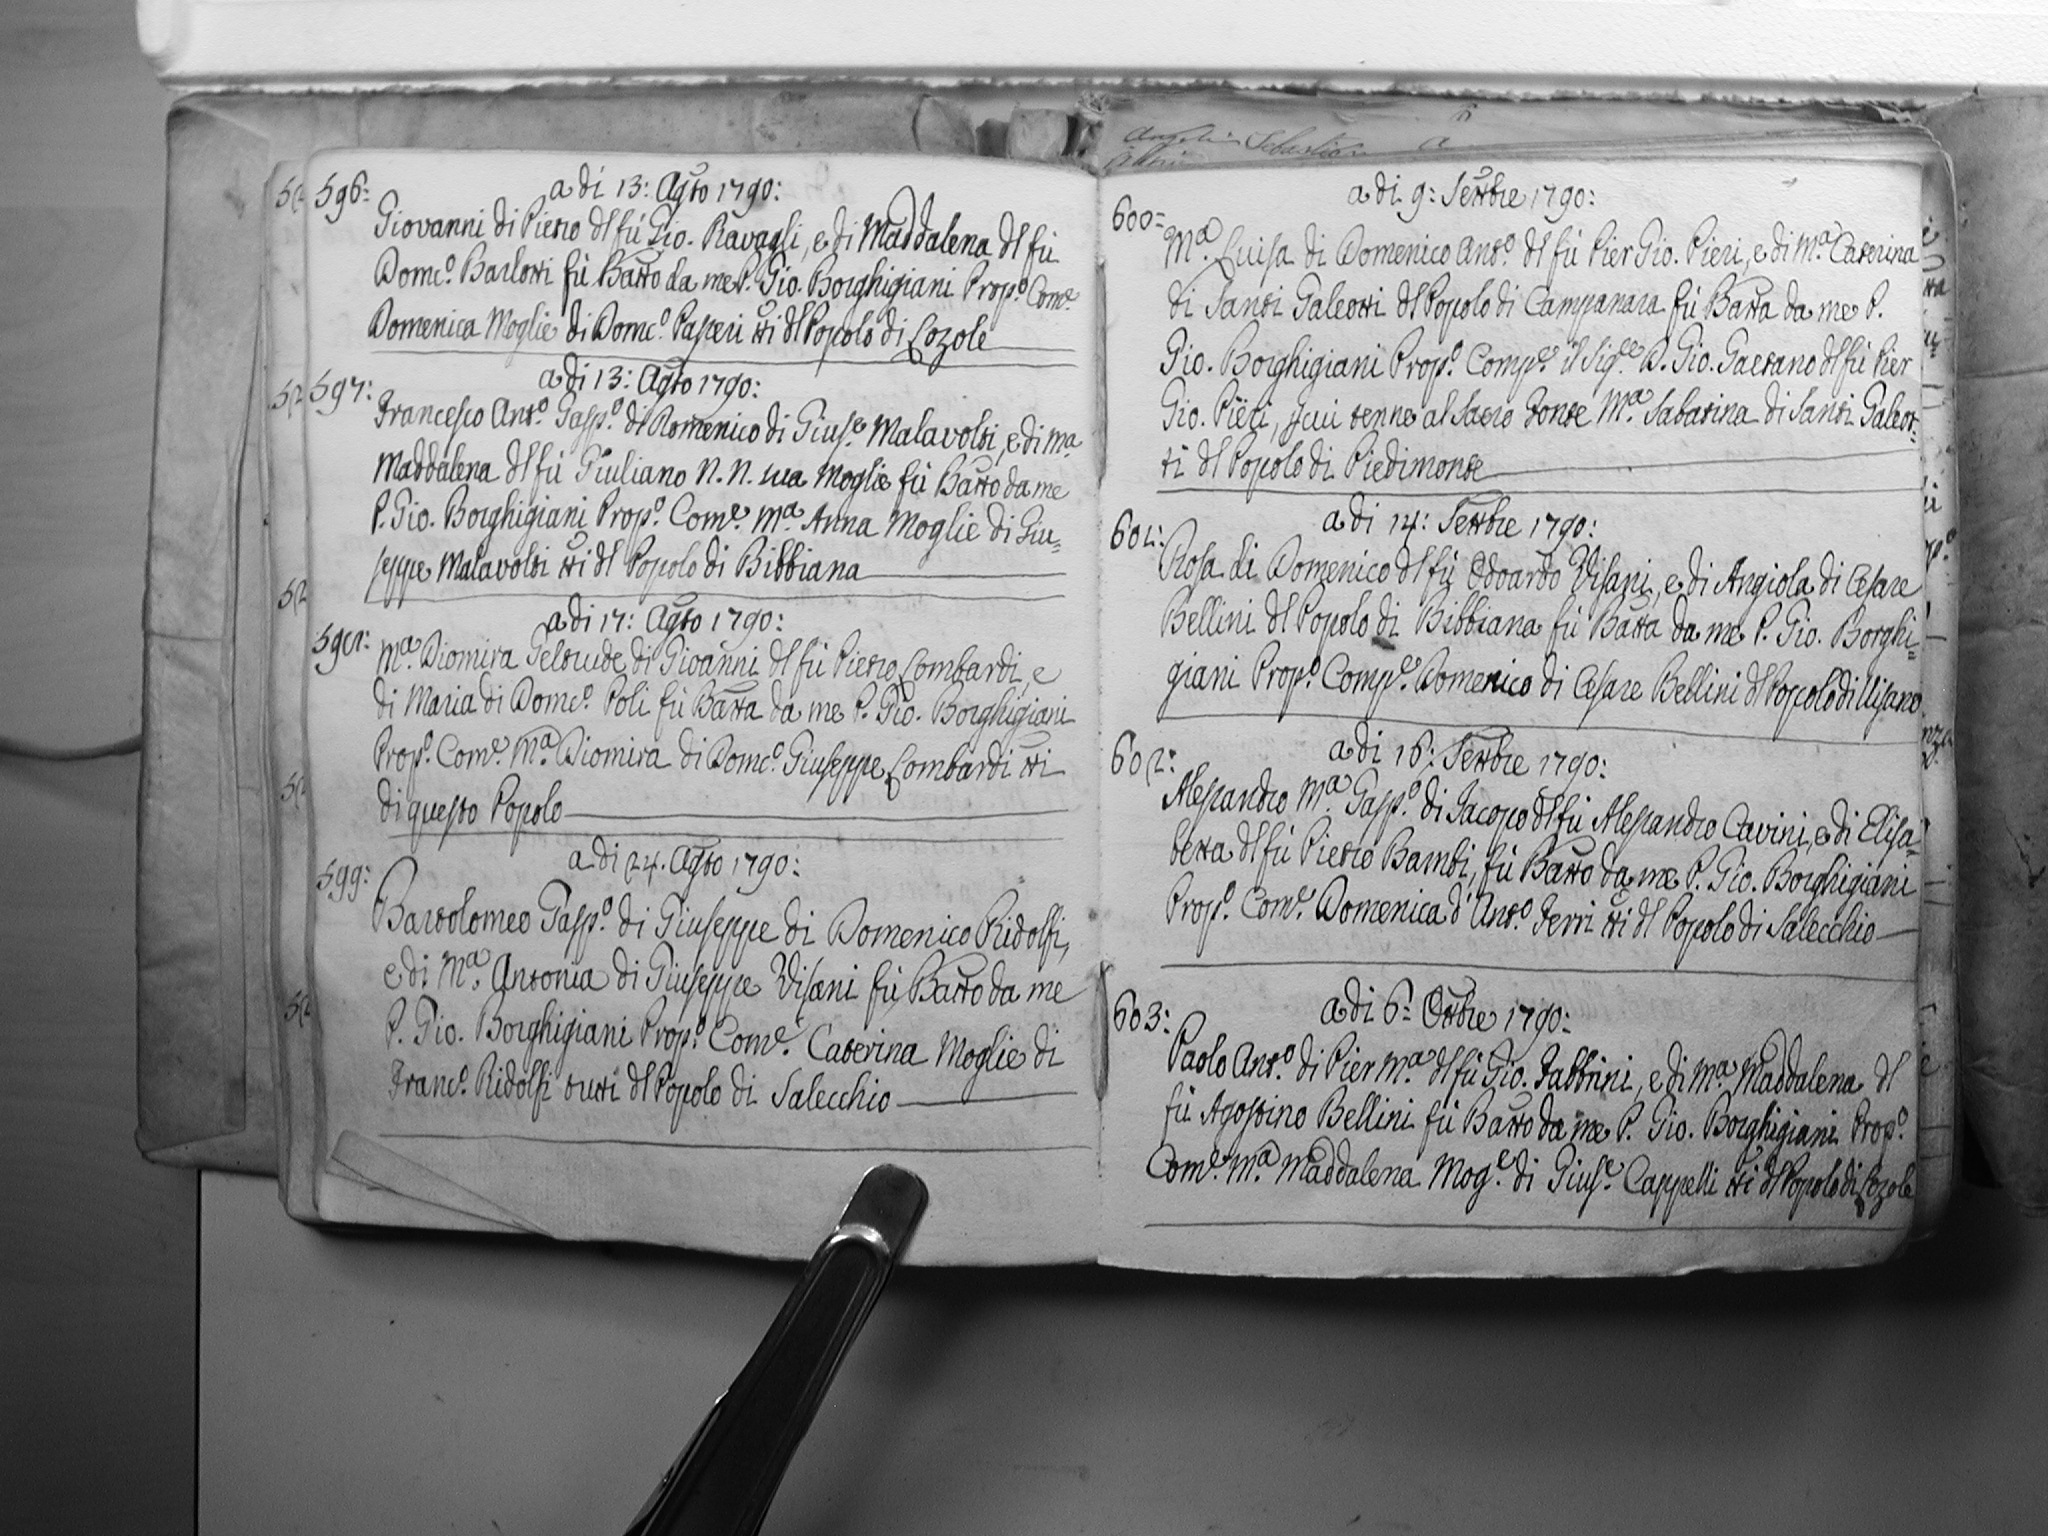 596:
a di 13: Agto 1790:
Giovanni di Pietro dl fù Gio. Ravagli, e di Maddalena dl fù
Domco. Barlotti fù Batto da me P. Gio. Borghigiani Propo. Come.
Domenica Moglie di Domco. Paperi tti dl Popolo di Lozole
597:
a di 13: Agto 1790:
Francesco Anto. Gaspo. di Domenico di Giuse. Malavolti, e di Ma.
Maddalena dl fù Giuliano N. N. sua Moglie fù Batto da me
P. Gio. Borghigiani Propo. Come. Ma. Anna Moglie di Giu=
seppe Malavolti tti dl Popolo di Bibbiana
598:
a di 17: Agto 1790:
Ma. Diomira Geltrude di Gioanni dl fù Pietro Lombardi, e
di Maria di Domco. Poli fù Batta da me P. Gio. Borghigiani
Propo. Come. Ma. Diomira di Domco. Giuseppe Lombardi tti
di questo Popolo
599:
a di 24. Agto 1790:
Bartolomeo Gaspo. di Giuseppe di Domenico Ridolfi,
e di Ma. Antonia di Giuseppe Visani fù Batto da me
P. Gio. Borghigiani Propo. Come. Caterina Moglie di
Franco. Ridolfi tutti dl Popolo di Salecchio
600=
a di 9: Settbre 1790:
Ma. Luisa di Domenico Anto. dl fù Pier Gio. Pieri, e di Ma. Caterina
di Santi Galeotti dl Popolo di Campanara fù Batta da me P.
Gio. Borghigiani Propo. Compe. il Sige. D. Gio. Gaetano dl fù Pier
Gio. Pieri, cui tenne al Sacro Fonte Ma. Sabatina di Santi Galeot=
ti dl Popolo di Piedimonte
601:
a di 14: Settbre 1790:
Rosa di Domenico dl fù Edoardo Visani, e di Angiola di Cesare
Bellini dl Popolo di Bibbiana fù Batta da me P. Gio. Borghi=
giani Propo. Compe. Domenico di Cesare Bellini dl Popolo di Visano
602:
a di 16: Settbre 1790:
Alessandro Ma. Gaspo. di Jacopo dl fù Alessandro Cavini, e di Elisa=
betta dl fù Pietro Bambi, fù Batto da me P. Gio. Borghigiani
Propo. Come. Domenica d'Anto. Ferri tti dl Popolo di Salecchio
603:
a di 6: Ottbre 1790:
Paolo Anto. di Pier Ma. dl fù Gio. Fabbrini, e di Ma. Maddalena dl
fù Agostino Bellini fù Batto da me P. Gio. Borghigiani Propo.
Come. Ma. Maddalena Moge. di Giuse. Cappelli tti dl Popolo di Lozole